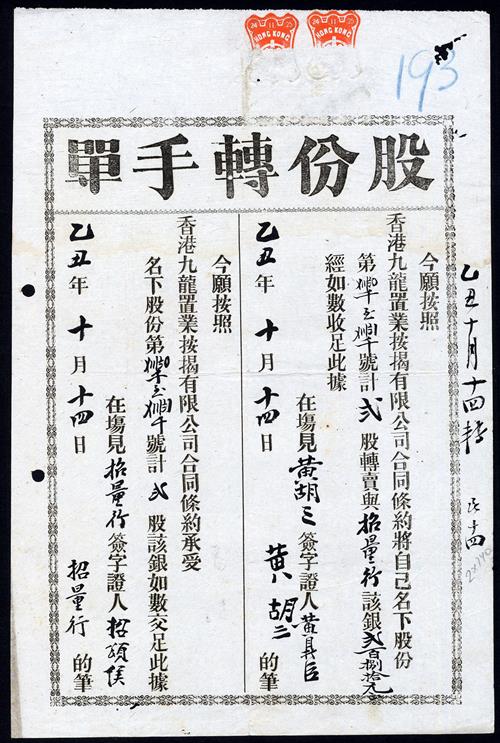 HONG KONG
HONG KONG
193
股份轉手單
乙丑十月十四轉
今願按照
香港九龍置業按揭有限公司合同條約將自己名下股份
第 號計 弍 股轉賣與招量行該銀弍百捌拾元
經如數收足此據
在塲見黃胡三簽字證人黃 臣
乙丑年十月十四日 黃胡三 的筆
今願按照
香港九龍置業按揭有限公司合同條約承受
名下股份第 號計 弍 股該銀如數交足此據
在塲見招量行簽字證人招頌侯
乙丑年十月十四日 招量行 的筆